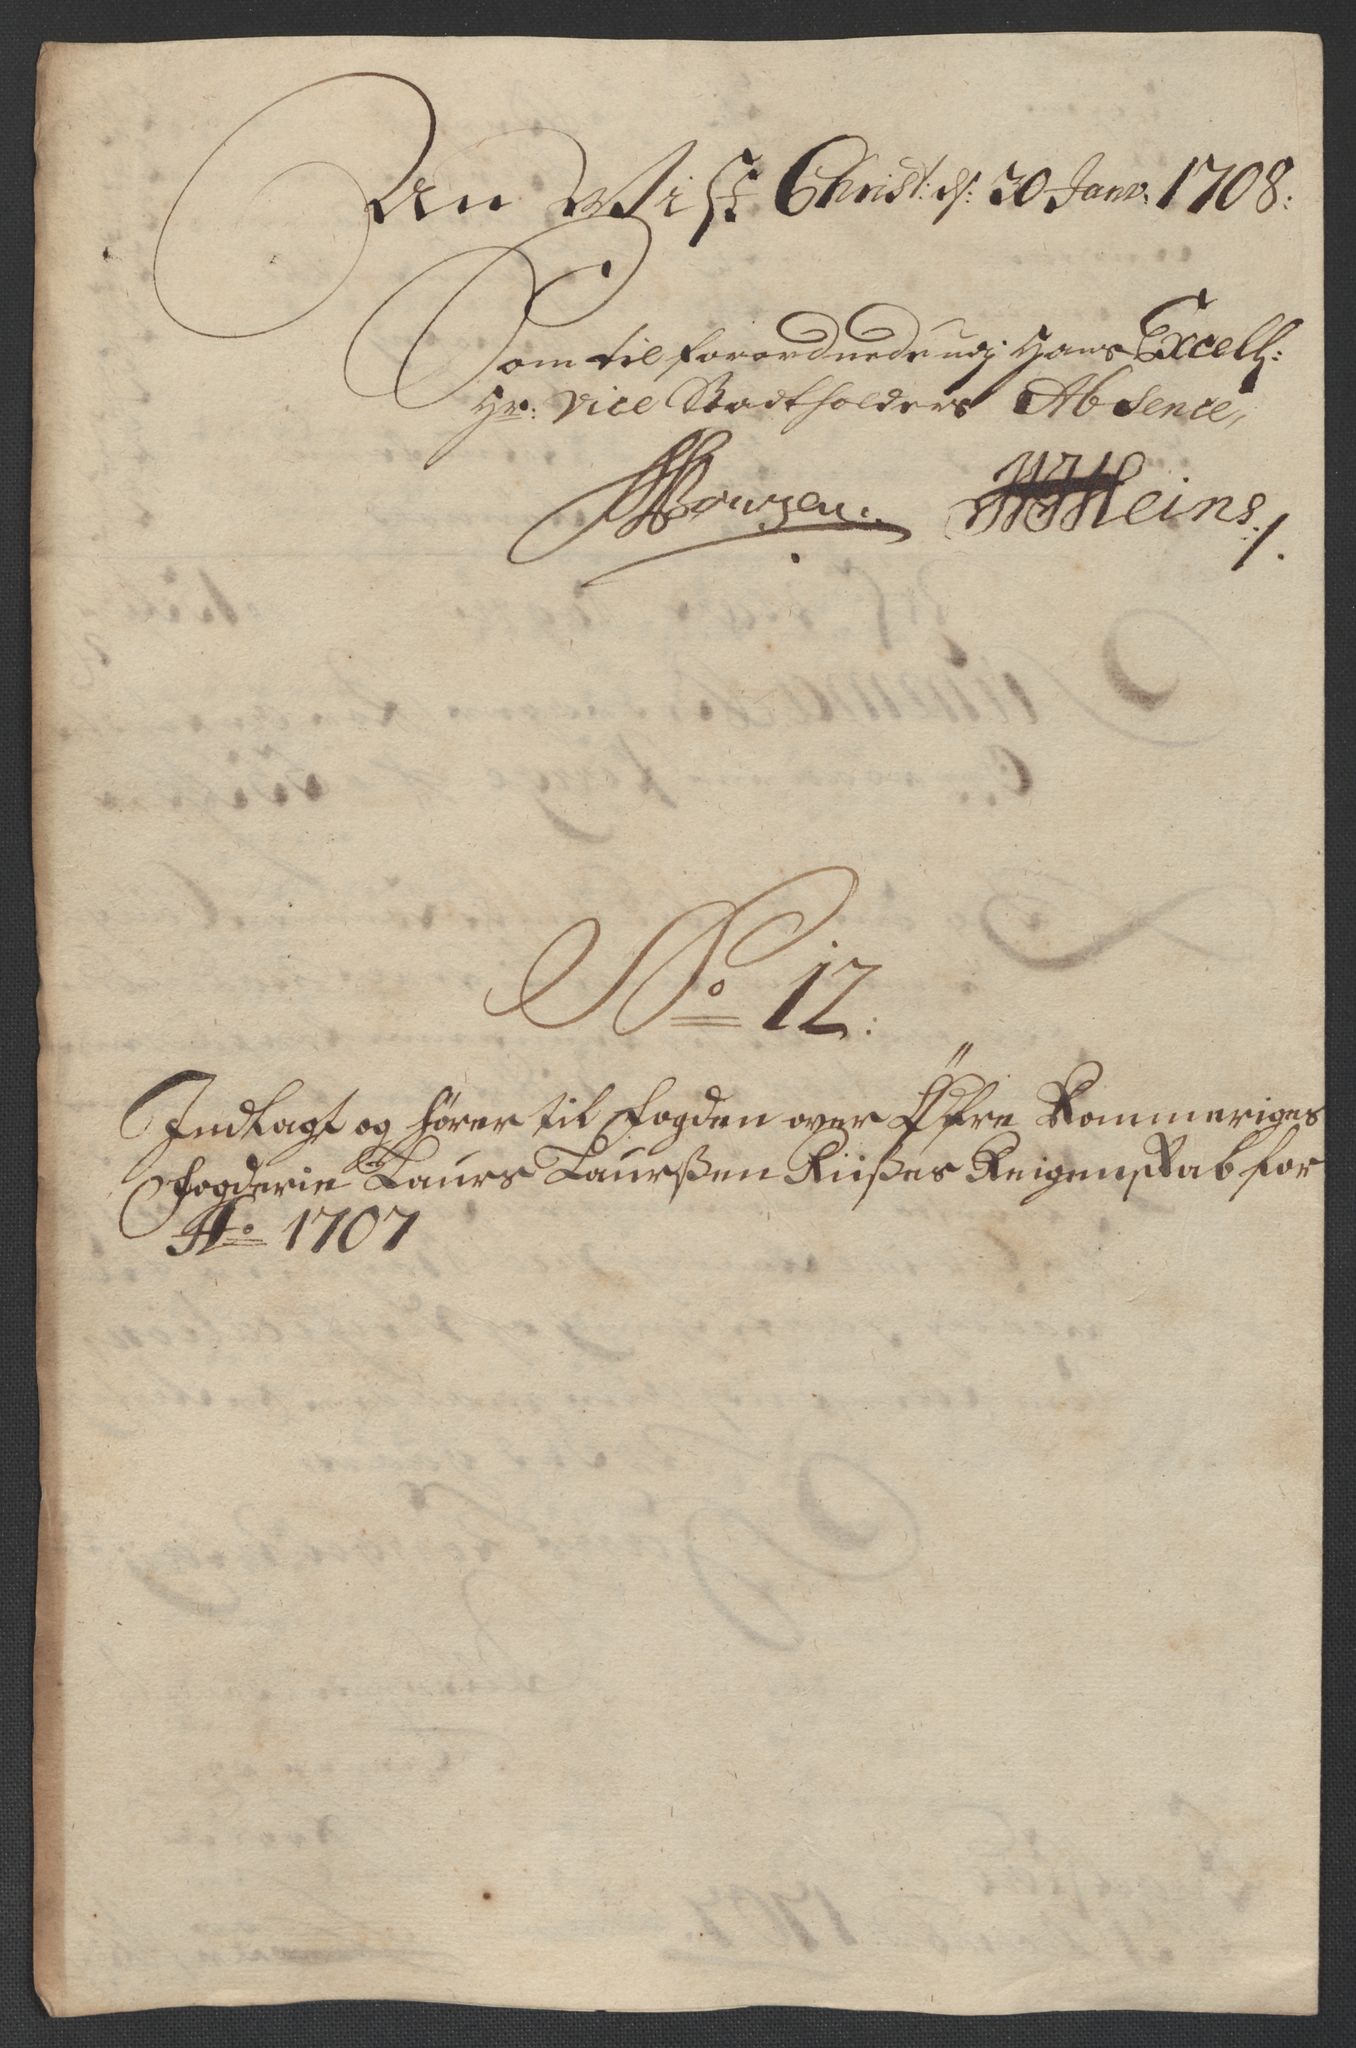 An Vist Christ: d: 30 Janv: 1708:
Som til forordnede udj Hans Excell:
Hr: Vice Stadtholders Absence,
Heins
No 12:
Indlagt og hører til fogden over Öfre Rommeriges
fogderie Laurs Laurßen Riißes Reigenskab for
Ao 1707